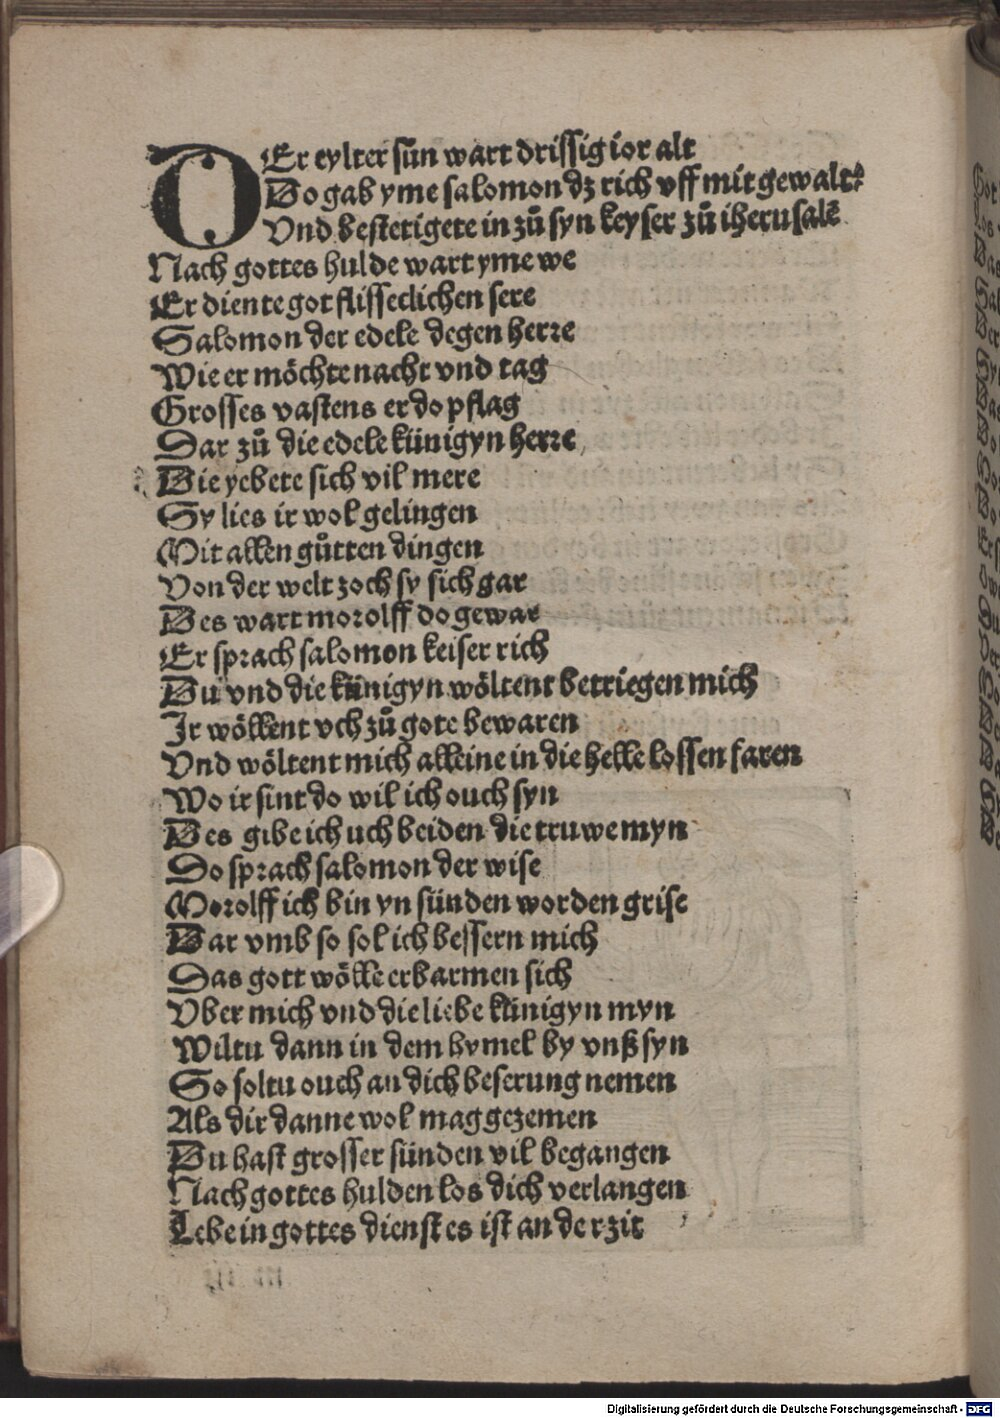 DEr eylter sün wart drissig ior alt
Do gab yme salomon dz rich vff mit gewalt
Vnd bestetigete in zů syn keyser zů iherusalē
Nach gottes hulde wart yme we
Er diente got flisseclichen sere
Salomon der edele degen herre
Wie er möchte nacht vnd tag
Grosses vastens er do pflag
Dar zů die edele künigyn herre
Die yebete sich vil mere
Sy lies ir wol gelingen
Mit allen gůtten dingen
Von der welt zoch sy sich gar
Des wart morolff do gewar
Er sprach salomon keiser rich
Du vnd die künigyn wöltent betriegen mich
Ir wöllent vch zů gote bewaren
Vnd wöltent mich alleine in die helle lossen faren
Wo ir sint do wil ich ouch syn
Des gibe ich uch beiden die truwe myn
Do sprach salomon der wise
Morolff ich bin yn sünden worden grise
Dar vmb so sol ich bessern mich
Das gott wölle erbarmen sich
Vber mich vnd die liebe künigyn myn
Wiltu dann in dem hymel by vnß syn
So soltu ouch an dich beserung nemen
Als dir danne wol mag gezemen
Du hast grosser sünden vil begangen
Nach gottes hulden los dich verlangen
Lebe in gottes dienst es ist an der zit
Digitalisierung gefördert durch die Deutsche Forschungsgemeinschaft - DFG